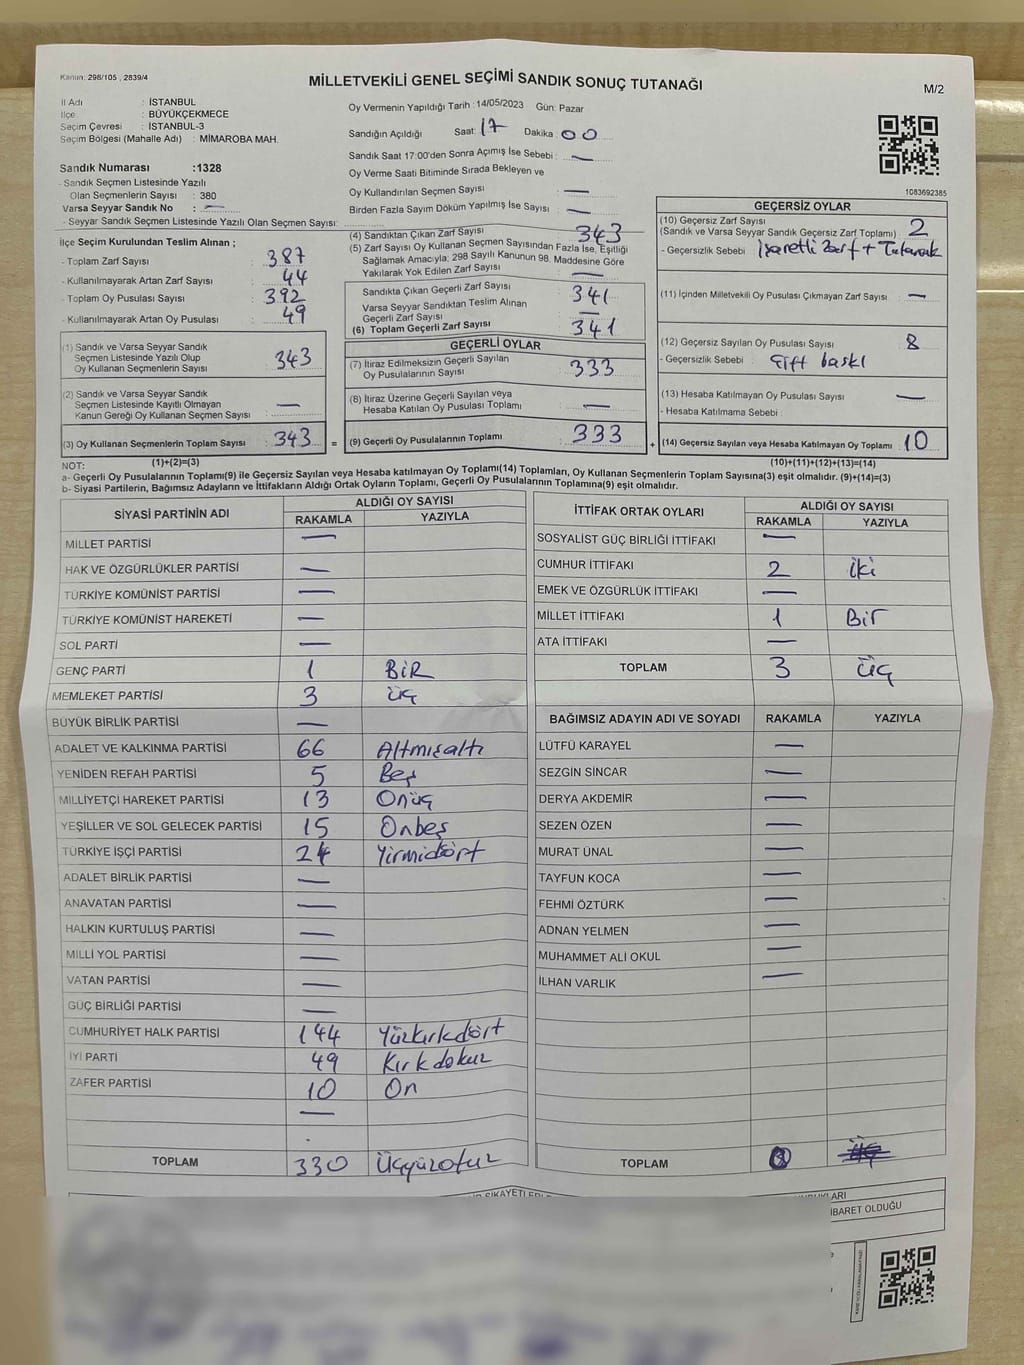 Kanun: 298/105 , 2839/4
MİLLETVEKİLİ GENEL SEÇİMİ SANDIK SONUÇ TUTANAĞI
M/2
İl Adı : İSTANBUL
İlçe : BÜYÜKÇEKMECE
Seçim Çevresi : İSTANBUL-3
Seçim Bölgesi (Mahalle Adı) : MİMAROBA MAH.
Sandık Numarası :1328
- Sandık Seçmen Listesinde Yazılı
Olan Seçmenlerin Sayısı : 380
Varsa Seyyar Sandık No : —
- Seyyar Sandık Seçmen Listesinde Yazılı Olan Seçmen Sayısı:
İlçe Seçim Kurulundan Teslim Alınan ;
- Toplam Zarf Sayısı : 387
- Kullanılmayarak Artan Zarf Sayısı : 44
- Toplam Oy Pusulası Sayısı : 392
- Kullanılmayarak Artan Oy Pusulası : 49
(1) Sandık ve Varsa Seyyar Sandık
Seçmen Listesinde Yazılı Olup
Oy Kullanan Seçmenlerin Sayısı : 343
(2) Sandık ve Varsa Seyyar Sandık
Seçmen Listesinde Kayıtlı Olmayan
Kanun Gereği Oy Kullanan Seçmen Sayısı : —
(3) Oy Kullanan Seçmenlerin Toplam Sayısı : 343
(1)+(2)=(3)
Oy Vermenin Yapıldığı Tarih : 14/05/2023 Gün: Pazar
Sandığın Açıldığı Saat: 17 Dakika : 00
Sandık Saat 17:00'den Sonra Açılmış İse Sebebi : —
Oy Verme Saati Bitiminde Sırada Bekleyen ve
Oy Kullandırılan Seçmen Sayısı : —
Birden Fazla Sayım Döküm Yapılmış İse Sayısı : —
(4) Sandıktan Çıkan Zarf Sayısı : 343
(5) Zarf Sayısı Oy Kullanan Seçmen Sayısından Fazla İse, Eşitliği
Sağlamak Amacıyla; 298 Sayılı Kanunun 98. Maddesine Göre
Yakılarak Yok Edilen Zarf Sayısı : —
Sandıkta Çıkan Geçerli Zarf Sayısı : 341
Varsa Seyyar Sandıktan Teslim Alınan
Geçerli Zarf Sayısı : —
(6) Toplam Geçerli Zarf Sayısı : 341
GEÇERLİ OYLAR
(7) İtiraz Edilmeksizin Geçerli Sayılan
Oy Pusulalarının Sayısı : 333
(8) İtiraz Üzerine Geçerli Sayılan veya
Hesaba Katılan Oy Pusulası Toplamı : —
= (9) Geçerli Oy Pusulalarının Toplamı : 333 +
1083692385
GEÇERSİZ OYLAR
(10) Geçersiz Zarf Sayısı
(Sandık ve Varsa Seyyar Sandık Geçersiz Zarf Toplamı) : 2
- Geçersizlik Sebebi : İşaretli Zarf + Tutanak
(11) İçinden Milletvekili Oy Pusulası Çıkmayan Zarf Sayısı : —
(12) Geçersiz Sayılan Oy Pusulası Sayısı : 8
- Geçersizlik Sebebi : Çift baskı
(13) Hesaba Katılmayan Oy Pusulası Sayısı : —
- Hesaba Katılmama Sebebi :
(14) Geçersiz Sayılan veya Hesaba Katılmayan Oy Toplamı : 10
(10)+(11)+(12)+(13)=(14)
NOT:
a- Geçerli Oy Pusulalarının Toplamı(9) ile Geçersiz Sayılan veya Hesaba katılmayan Oy Toplamı(14) Toplamları, Oy Kullanan Seçmenlerin Toplam Sayısına(3) eşit olmalıdır. (9)+(14)=(3)
b- Siyasi Partilerin, Bağımsız Adayların ve İttifakların Aldığı Ortak Oyların Toplamı, Geçerli Oy Pusulalarının Toplamına(9) eşit olmalıdır.
SİYASİ PARTİNİN ADI ALDIĞI OY SAYISI
RAKAMLA YAZIYLA
MİLLET PARTİSİ —
HAK VE ÖZGÜRLÜKLER PARTİSİ —
TÜRKİYE KOMÜNİST PARTİSİ —
TÜRKİYE KOMÜNİST HAREKETİ —
SOL PARTİ —
GENÇ PARTİ 1 BİR
MEMLEKET PARTİSİ 3 üç
BÜYÜK BİRLİK PARTİSİ —
ADALET VE KALKINMA PARTİSİ 66 Altmışaltı
YENİDEN REFAH PARTİSİ 5 Beş
MİLLİYETÇİ HAREKET PARTİSİ 13 Onüç
YEŞİLLER VE SOL GELECEK PARTİSİ 15 Onbeş
TÜRKİYE İŞÇİ PARTİSİ 24 Yirmidört
ADALET BİRLİK PARTİSİ —
ANAVATAN PARTİSİ —
HALKIN KURTULUŞ PARTİSİ —
MİLLİ YOL PARTİSİ —
VATAN PARTİSİ —
GÜÇ BİRLİĞİ PARTİSİ —
CUMHURİYET HALK PARTİSİ 144 Yüzkırkdört
İYİ PARTİ 49 Kırkdokuz
ZAFER PARTİSİ 10 On
—
TOPLAM 330 Üçyüzotuz
İTTİFAK ORTAK OYLARI ALDIĞI OY SAYISI
RAKAMLA YAZIYLA
SOSYALİST GÜÇ BİRLİĞİ İTTİFAKI —
CUMHUR İTTİFAKI 2 iki
EMEK VE ÖZGÜRLÜK İTTİFAKI —
MİLLET İTTİFAKI 1 Bir
ATA İTTİFAKI —
TOPLAM 3 üç
BAĞIMSIZ ADAYIN ADI VE SOYADI RAKAMLA YAZIYLA
LÜTFÜ KARAYEL —
SEZGİN SİNCAR —
DERYA AKDEMİR —
SEZEN ÖZEN —
MURAT ÜNAL —
TAYFUN KOCA —
FEHMİ ÖZTÜRK —
ADNAN YELMEN —
MUHAMMET ALİ OKUL —
İLHAN VARLIK —
TOPLAM
İBARET OLDUĞU